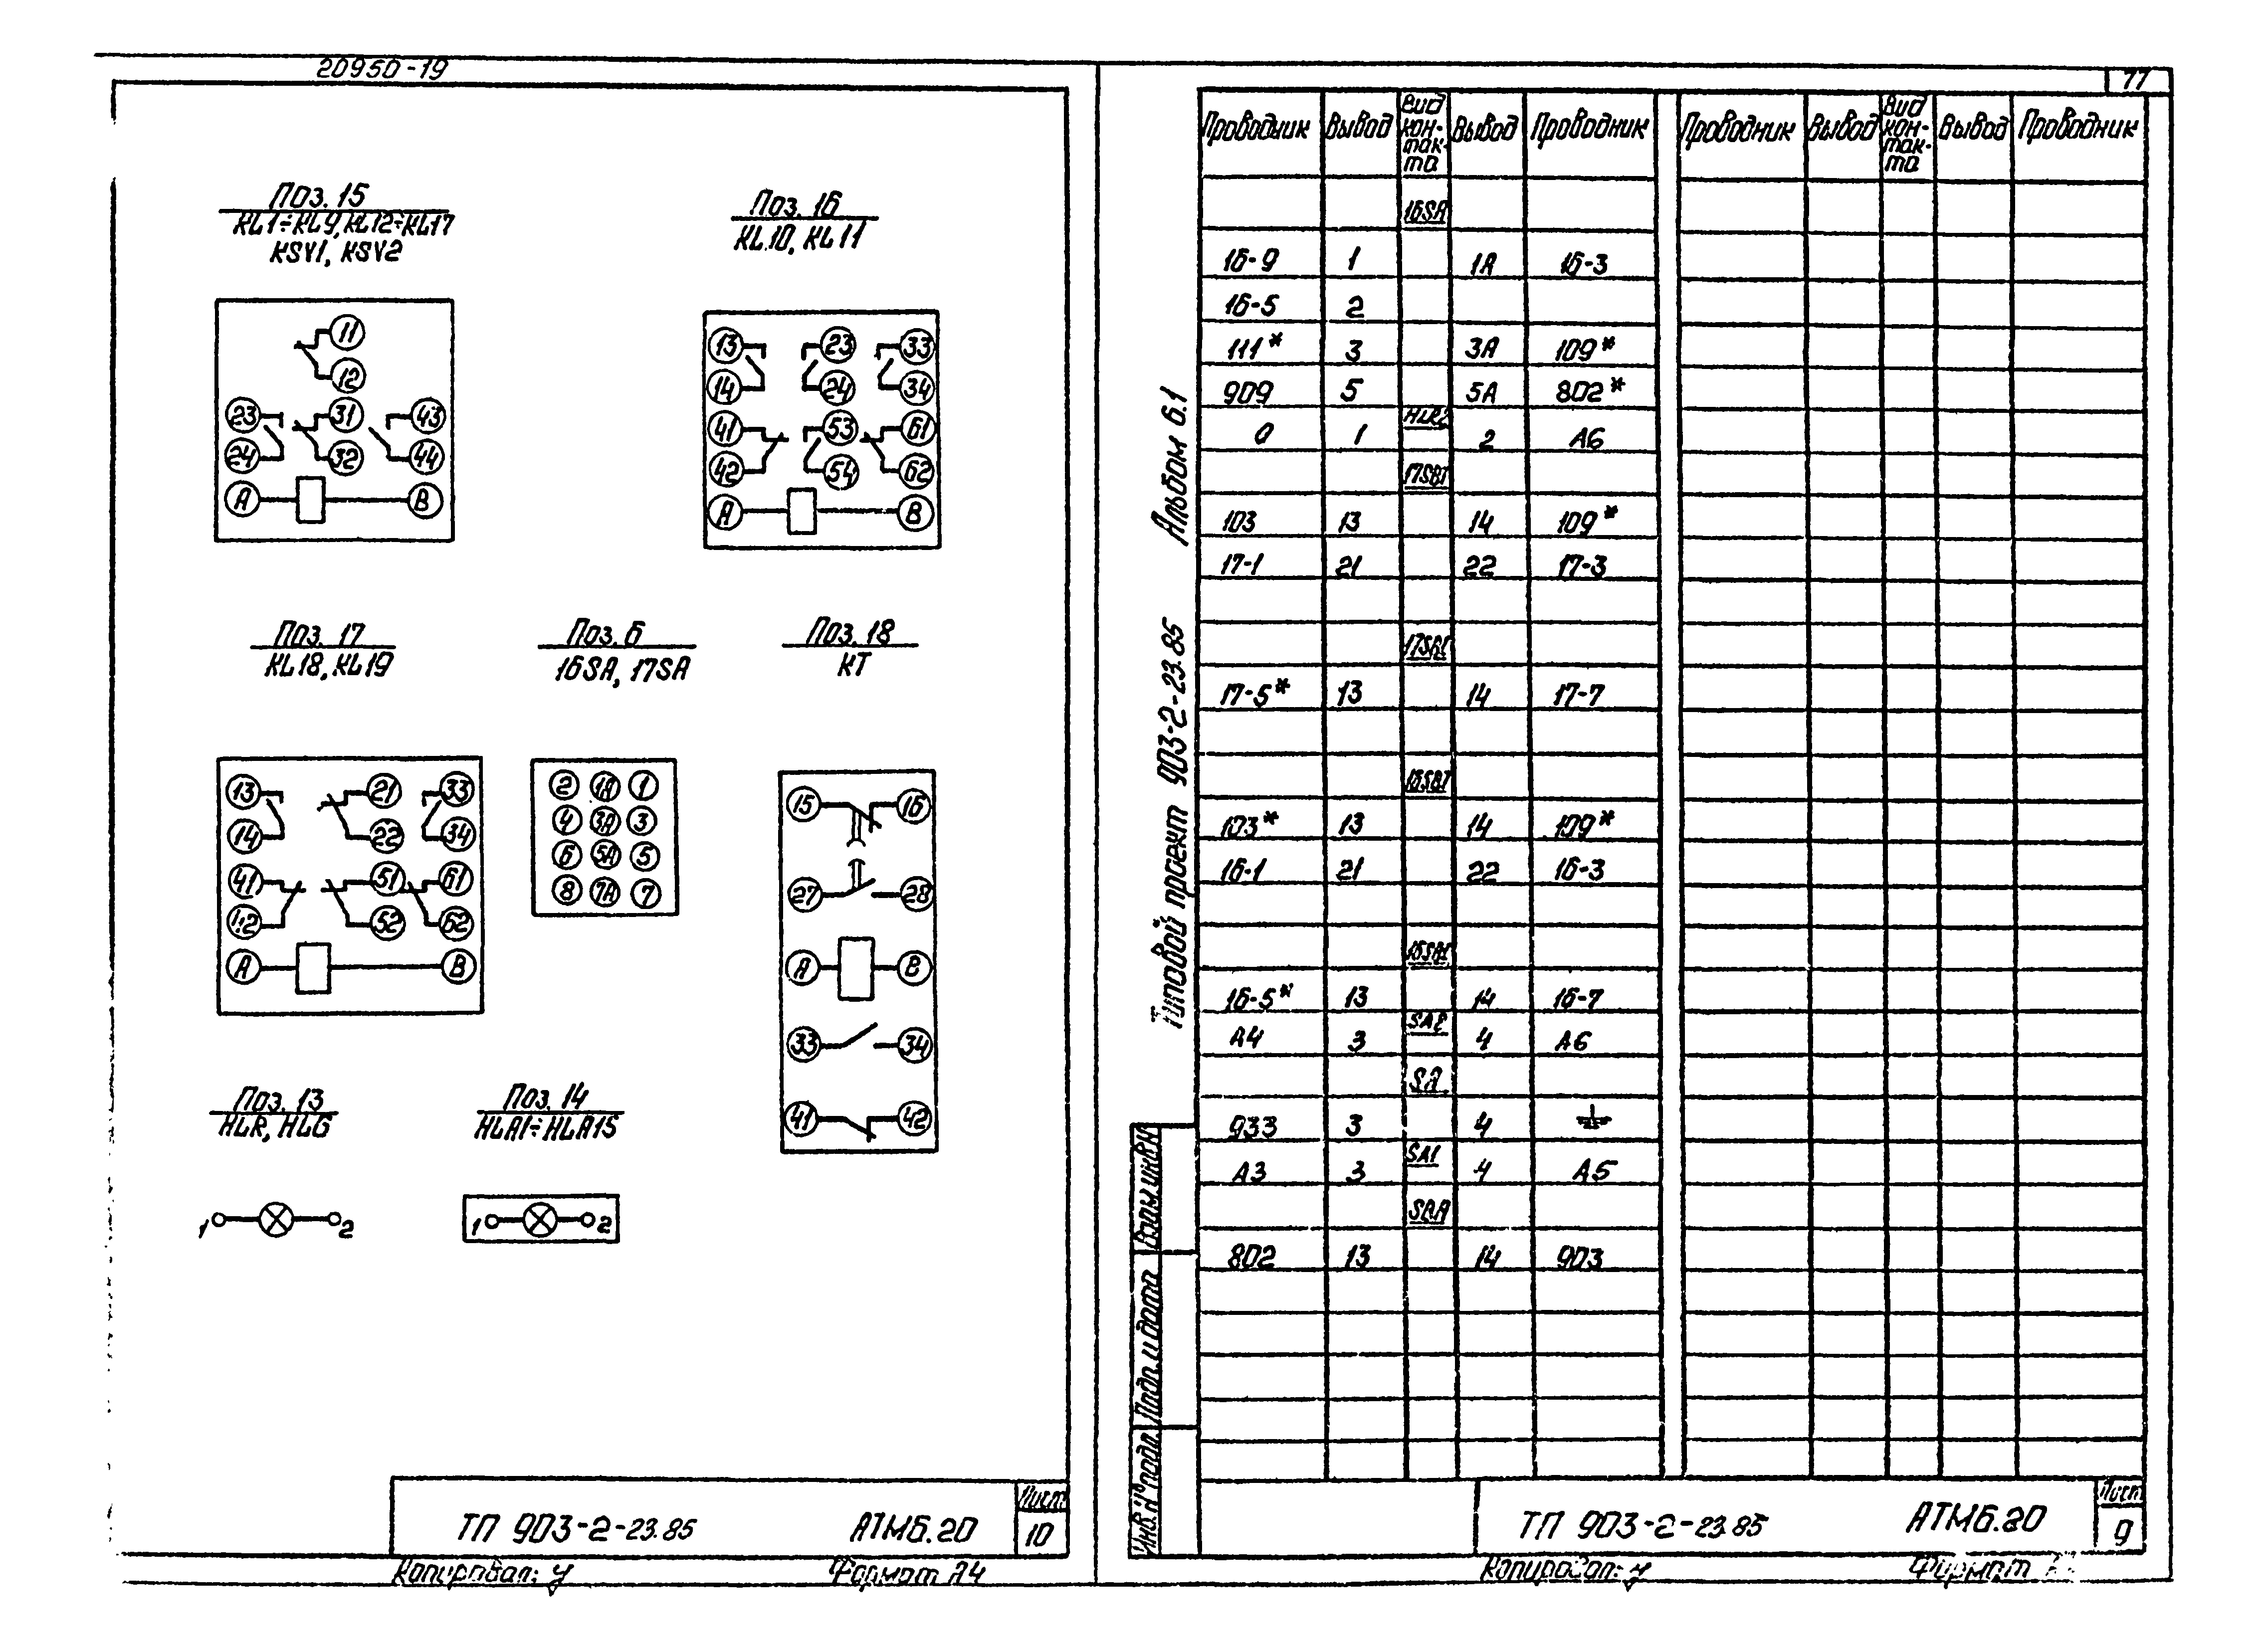 20950-19
Поз. 15
KL1÷KL9, KL12÷KL17
KSV1, KSV2
11
12
23 31 43
24 32 44
A B
Поз. 16
KL10, KL11
13 23 33
14 24 34
41 53 61
42 54 62
A B
Поз. 17
KL18, KL19
13 21 33
14 22 34
41 51 61
42 52 62
A B
Поз. 6
16SA, 17SA
2 1A 1
4 3A 3
6 5A 5
8 7A 7
Поз. 18
KT
15 16
27 28
A B
33 34
41 42
Поз. 13
HLR, HLG
1 2
Поз. 14
HLA1÷HLA15
1 2
ТП 903-2-23.85 АТМ6.20
Лист
10
Копировал: У Формат А4
77
Альбом 6.1
Типовой проект 903-2-23.85
Проводник Вывод Вид кон-так-та Вывод Проводник Проводник Вывод Вид кон-так-та Вывод Проводник
16SA
16-9 1 1A 16-3
16-5 2
111* 3 3A 109*
909 5 5A 802*
HLR2
0 1 2 A6
17SB1
103 13 14 109*
17-1 21 22 17-3
17-5* 13 14 17-7
103* 13 14 109*
16-1 21 22 16-3
16-5* 13 14 16-7
SA2
A4 3 4 A6
SA
933 3 4
SA1
A3 3 4 A5
802 13 14 903
Взам.инв.N
Подп. и дата
Инв.N°подл.
ТП 903-2-23.85 АТМ6.20
Лист
9
Копировал: У Формат